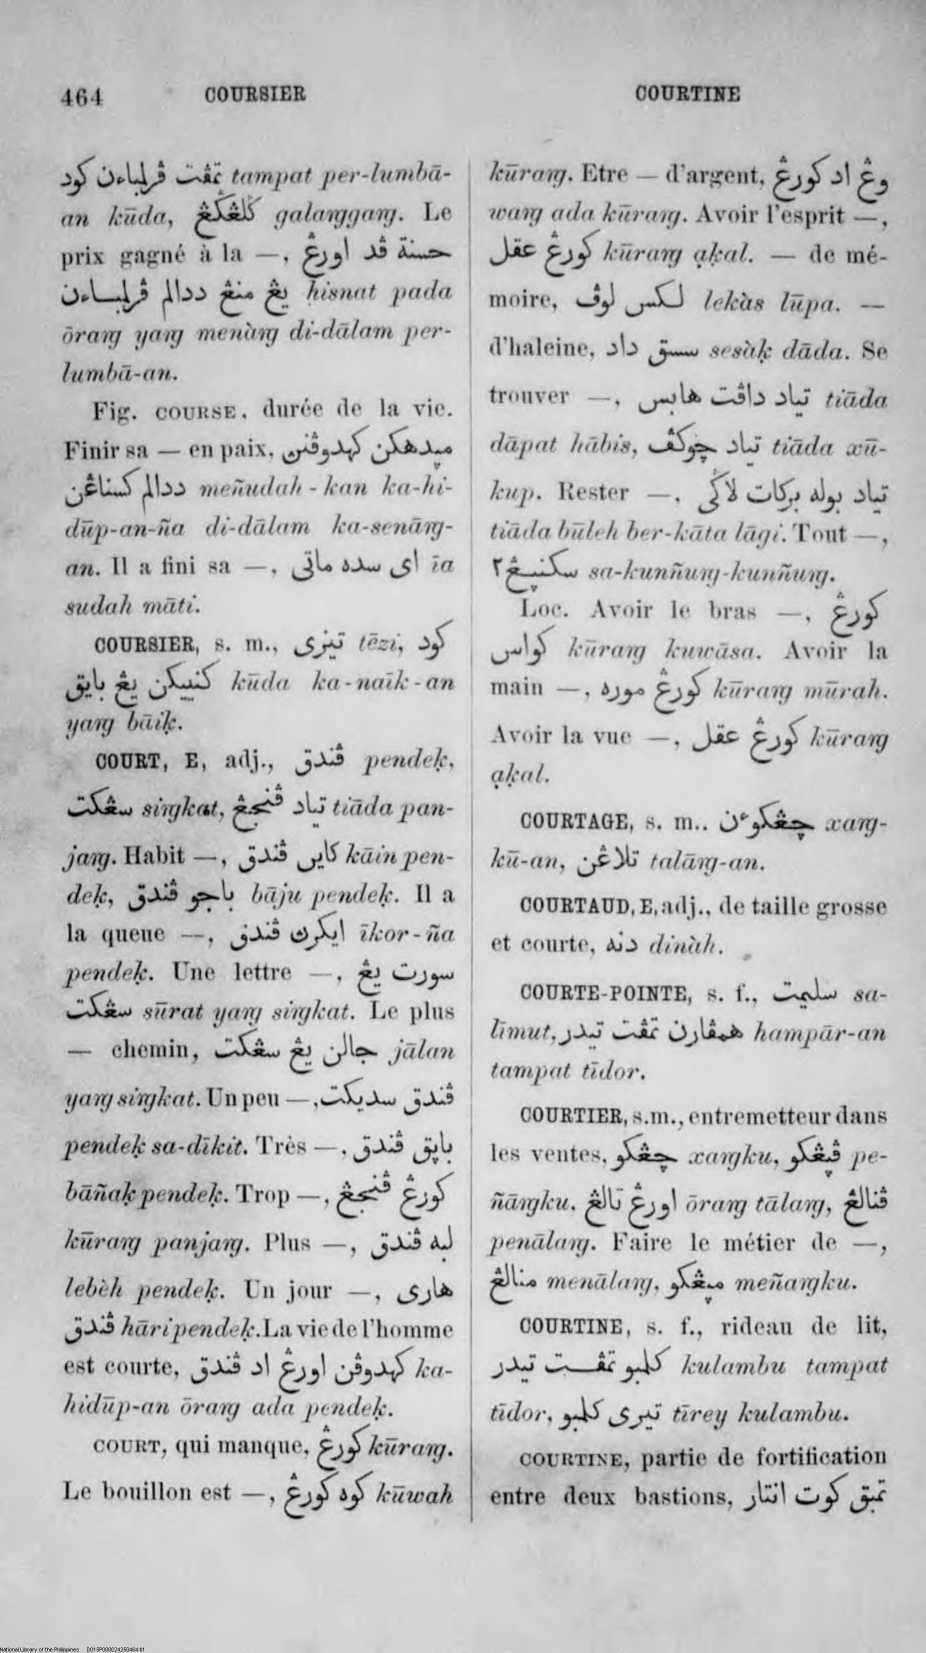 464 COURSIER COURTINE
تمڤت ڤرلمباءن کود tampat per-lumbā-
an kūda, ݢلڠݢڠ galaṅggaṅg. Le
prix gagné à la —, حسنة ڤد اورڠ
يڠ منڠ ددالم ڤرلمباءن ḥisnat pada
ōraṅg yaṅg menàṅg di-dālam per-
lumbā-an.
Fig. COURSE, durée de la vie.
Finir sa — en paix, مپدهکن کهدوڤنن
ددالم کسناڠن meñudah-kan ka-hi-
dūp-an-ña di-dālam ka-senāṅg-
an. Il a fini sa —, اى سده ماتى īa
sudah māti.
COURSIER, s. m., تيزى tēzi, کود
کنييکن يڠ بايق kūda ka-naīk-an
yaṅg bāiḳ.
COURT, E, adj., ڤندق pendeḳ,
سڠکت siṅgkat, تياد ڤنجڠ tiāda pan-
jaṅg. Habit —, کاين ڤندق kāin pen-
deḳ, باجو ڤندق bāju pendeḳ. Il a
la queue —, ايکرڽ ڤندق īkor-ña
pendeḳ. Une lettre —, سورت يڠ
سڠکت sūrat yaṅg siṅgkat. Le plus
— chemin, جالن يڠ سڠکت jālan
yaṅg siṅgkat. Un peu —, ڤندق سديکت
pendeḳ sa-dīkit. Très —, باپق ڤندق
bāñaḳ pendeḳ. Trop —, کورڠ ڤنجڠ
kūraṅg panjaṅg. Plus —, لبه ڤندق
lebèh pendeḳ. Un jour —, هارى
ڤندق hāri pendeḳ. La vie de l'homme
est courte, کهدوڤن اورڠ اد ڤندق ka-
hidūp-an ōraṅg ada pendeḳ.
COURT, qui manque, کورڠ kūraṅg.
Le bouillon est —, کوه کورڠ kūwah
kūraṅg. Etre — d'argent, وڠ اد کورڠ
waṅg ada kūraṅg. Avoir l'esprit —,
کورڠ عقل kūraṅg aḳal. — de mé-
moire, لکس لوڤ lekàs lūpa. —
d'haleine, سسق داد sesàḳ dāda. Se
trouver —, تياد داڤت هابس tiāda
dāpat hābis, تياد چوکڤ tiāda xū-
kup. Rester —, تياد بوله برکات لاݢى
tiāda būleh ber-kāta lāgi. Tout —,
سکنڽڠ٢ sa-kunñuṅg-kunñuṅg.
Loc. Avoir le bras —, کورڠ
کواس kūraṅg kuwāsa. Avoir la
main —, کورڠ موره kūraṅg mūrah.
Avoir la vue —, کورڠ عقل kūraṅg
aḳal.
COURTAGE, s. m., چڠکوءن xaṅg-
kū-an, تلاڠن talāṅg-an.
COURTAUD, E, adj., de taille grosse
et courte, دنه dinàh.
COURTE-POINTE, s. f., سليمت sa-
līmut, همڤارن تمڤت تيدر hampār-an
tampat tīdor.
COURTIER, s. m., entremetteur dans
les ventes, چڠکو xaṅgku, ڤڽڠکو pe-
ñāṅgku, اورڠ تالڠ ōraṅg tālaṅg, ڤنالڠ
penālaṅg. Faire le métier de —,
منالڠ menālaṅg, مڽڠکو meñaṅgku.
COURTINE, s. f., rideau de lit,
کلمبو تمڤت تيدر kulambu tampat
tīdor, تيرى کلمبو tīrey kulambu.
COURTINE, partie de fortification
entre deux bastions, تمبق کوت انتار
National Library of the Philippines